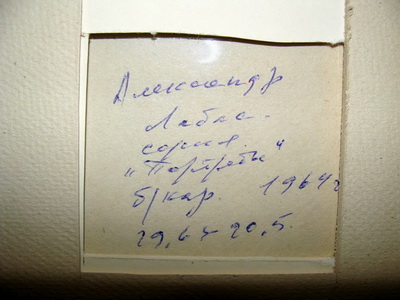 Александр
Лабас.
серия.
"Портреты"
б/кар. 1964г
29,6х20,5.